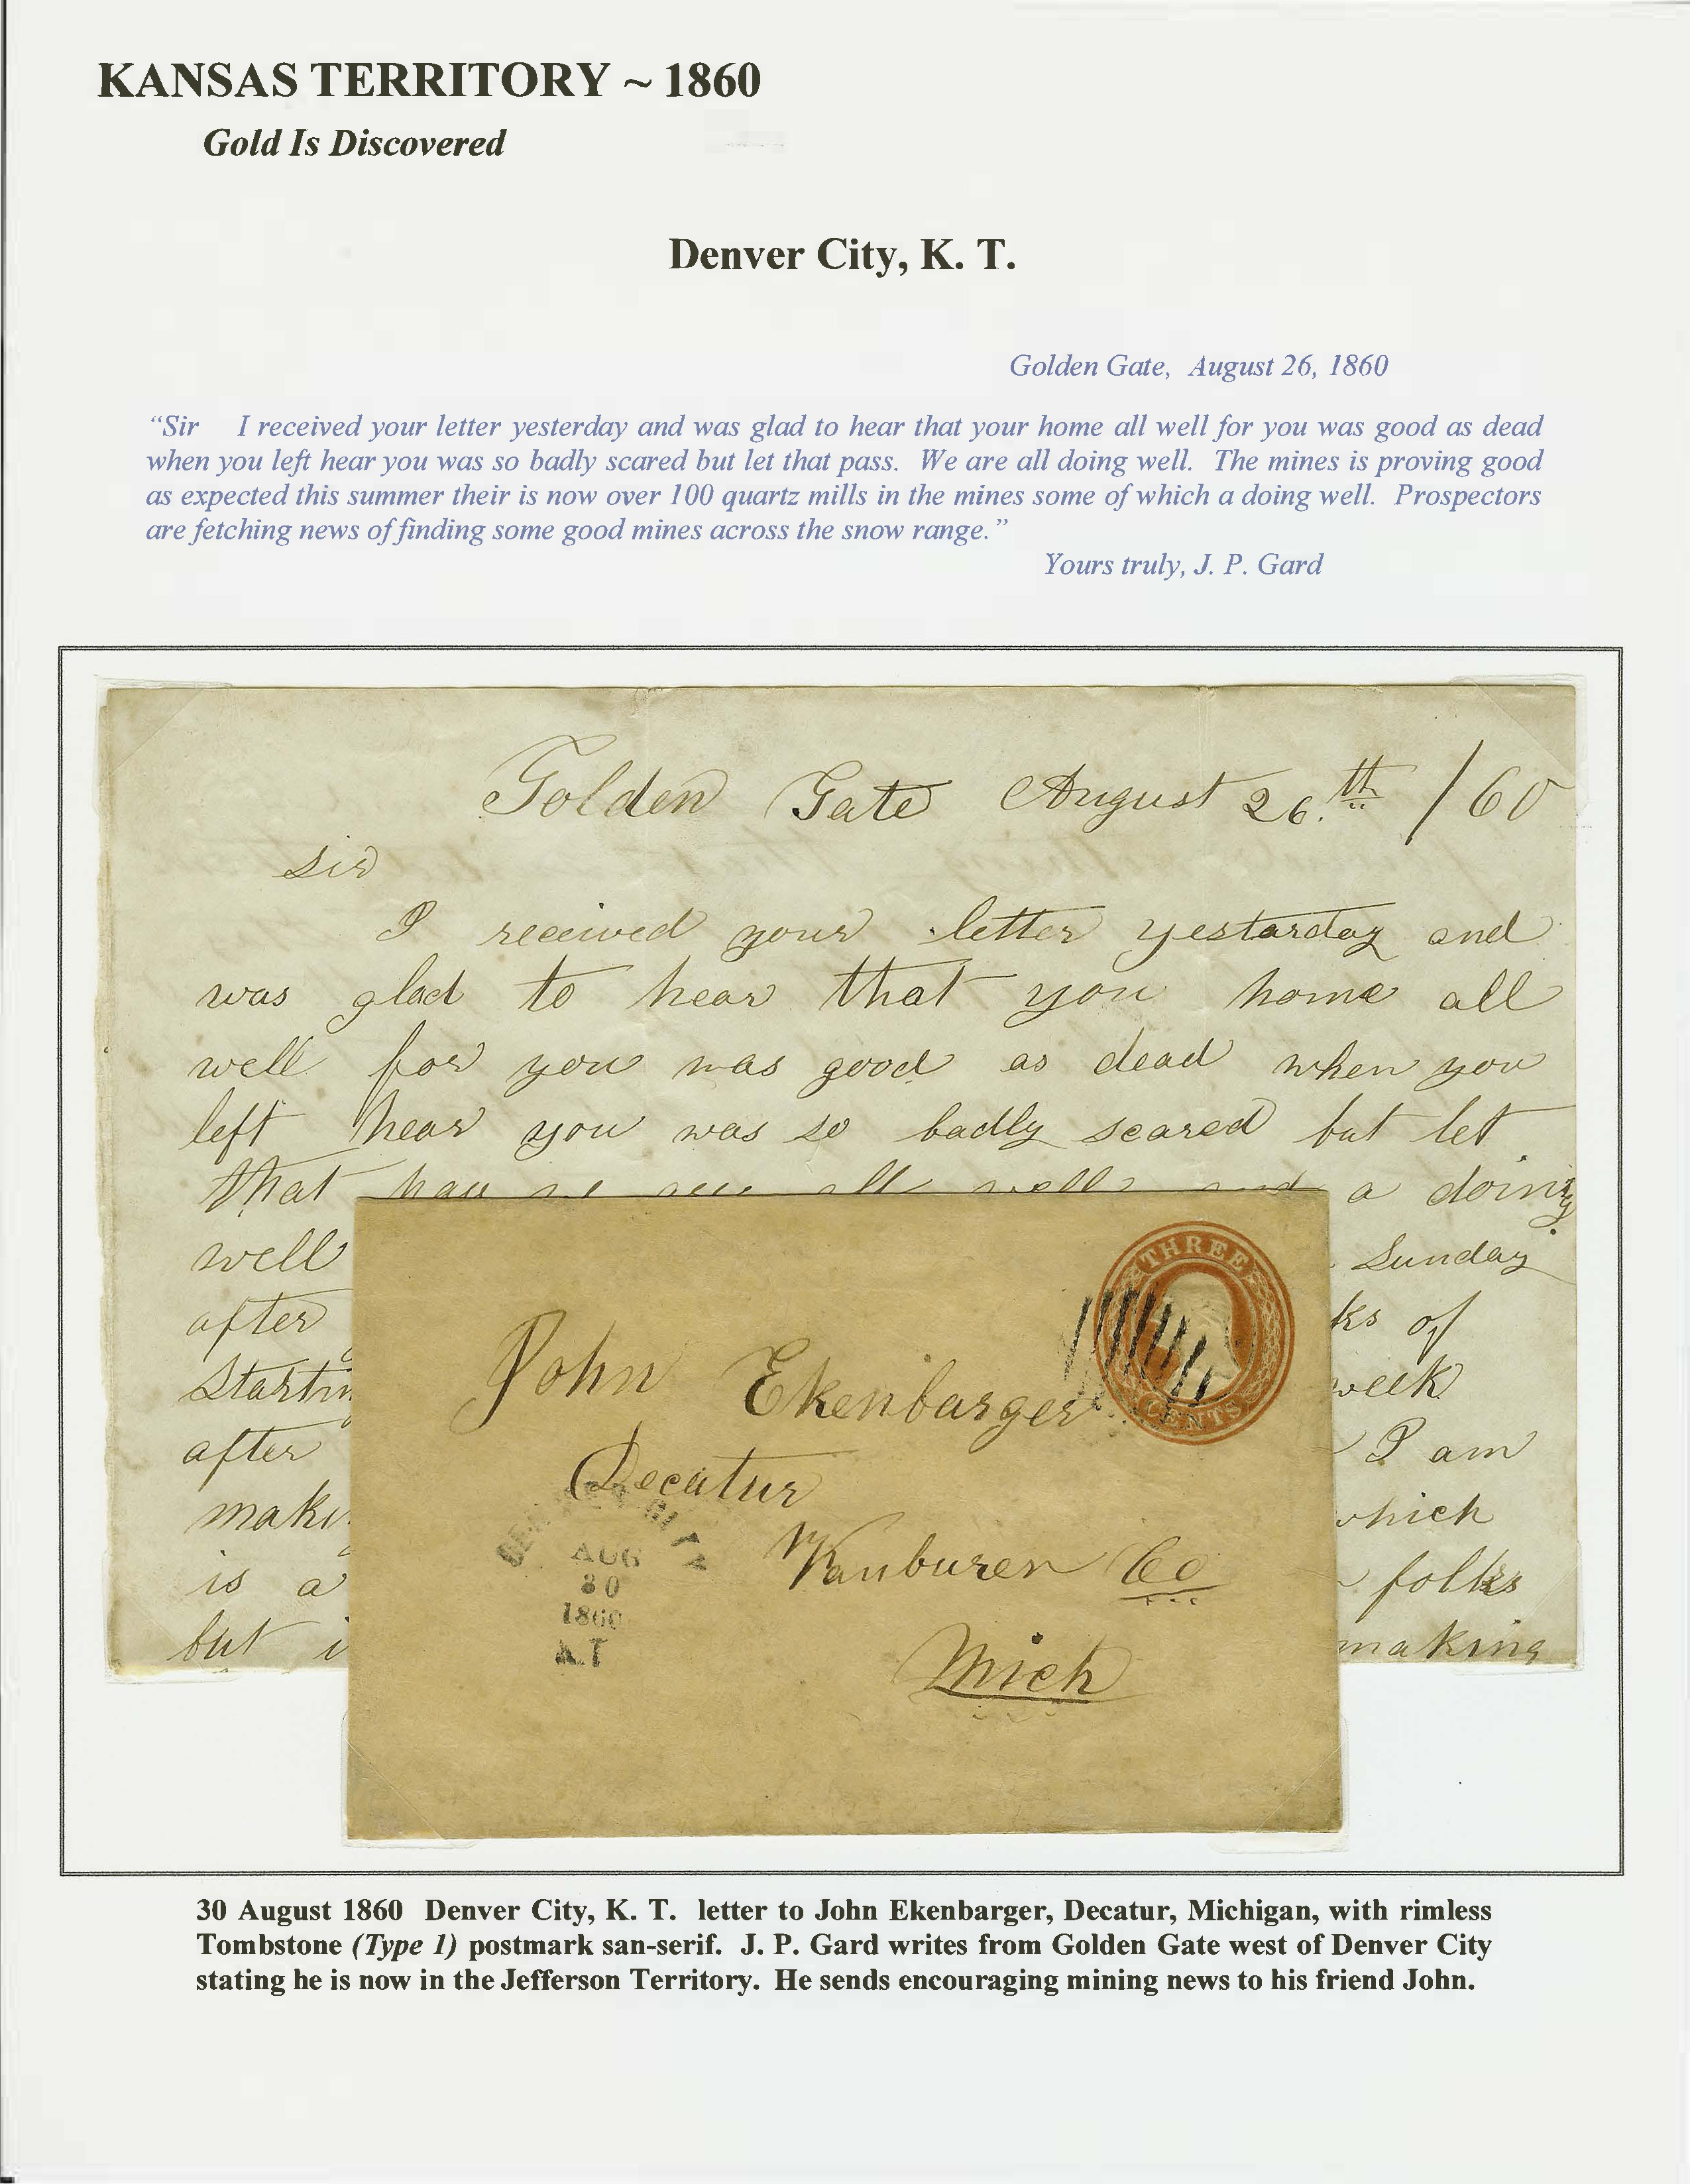 KANSAS TERRITORY ~ 1860
Gold Is Discovered
Denver City, K. T.
Golden Gate, August 26, 1860
“Sir I received your letter yesterday and was glad to hear that your home all well for you was good as dead
when you left hear you was so badly scared but let that pass. We are all doing well. The mines is proving good
as expected this summer their is now over 100 quartz mills in the mines some of which a doing well. Prospectors
are fetching news of finding some good mines across the snow range.”
Yours truly, J. P. Gard
Golden Gate August 26.th /60
Sir
I received your letter yestarday and
was glad to hear that you home all
well for you was good as dead when you
left hear you was so badly scared but let
that all well and a doing
well Sunday
after of
Startin week
after I am
which
is a folks
but making
THREE
CENTS
John Ekenbarger
Decatur
Vanburen Co
Mich
DENVER CITY
AUG
30
1860
K.T
30 August 1860 Denver City, K. T. letter to John Ekenbarger, Decatur, Michigan, with rimless
Tombstone (Type 1) postmark san-serif. J. P. Gard writes from Golden Gate west of Denver City
stating he is now in the Jefferson Territory. He sends encouraging mining news to his friend John.